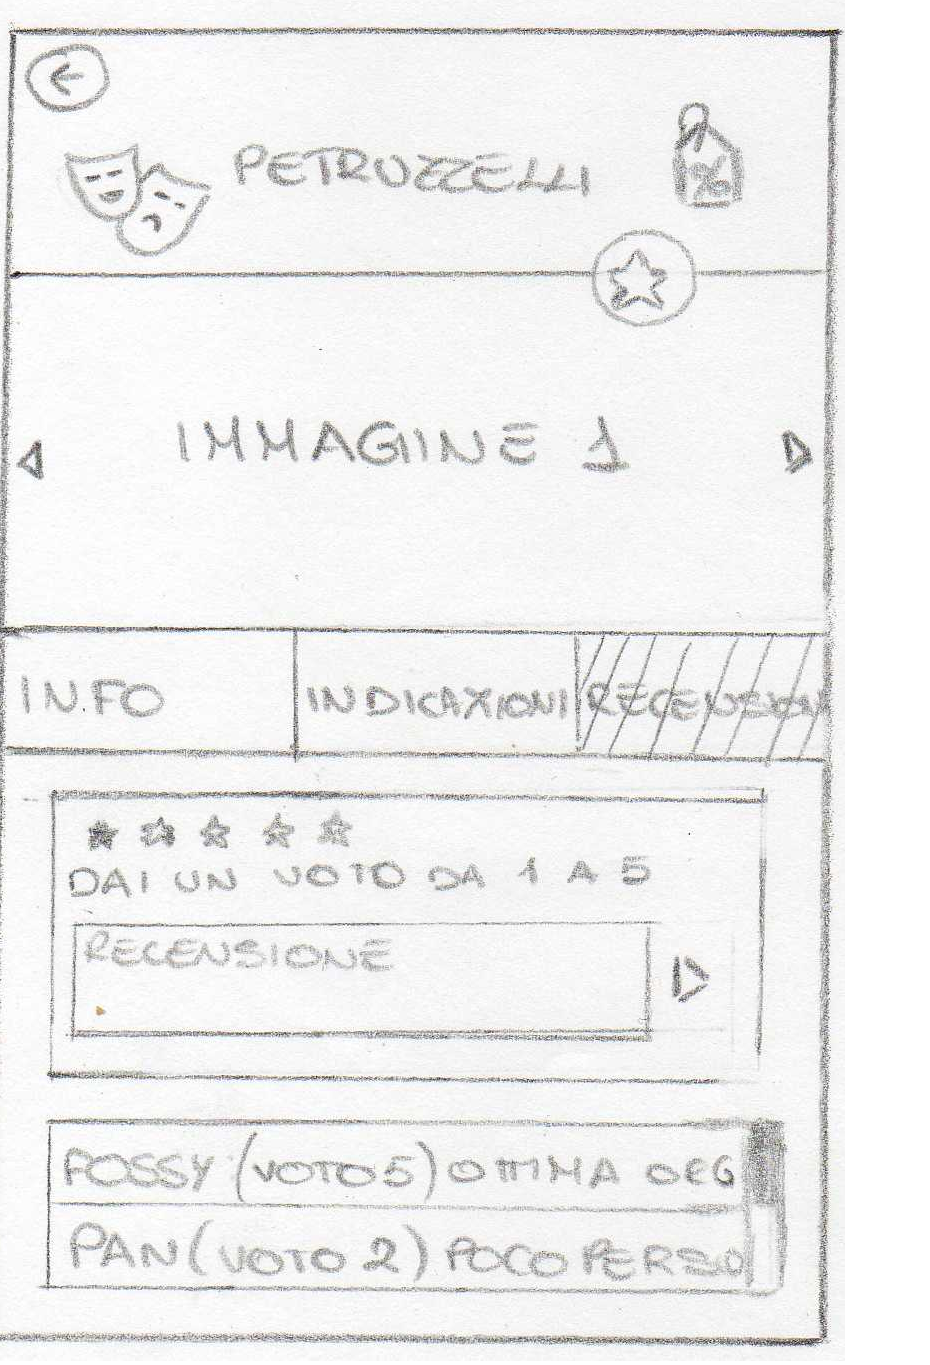 PETRUZZELLI
%
IMMAGIINE 1
INFO
INDICAZIONI
RECENSIONI
DAI UN VOTO DA 1 A 5
RECENSIONE
POSSY (VOTO 5) OTTIMA ORG
PAN (VOTO 2) POCO PERSO